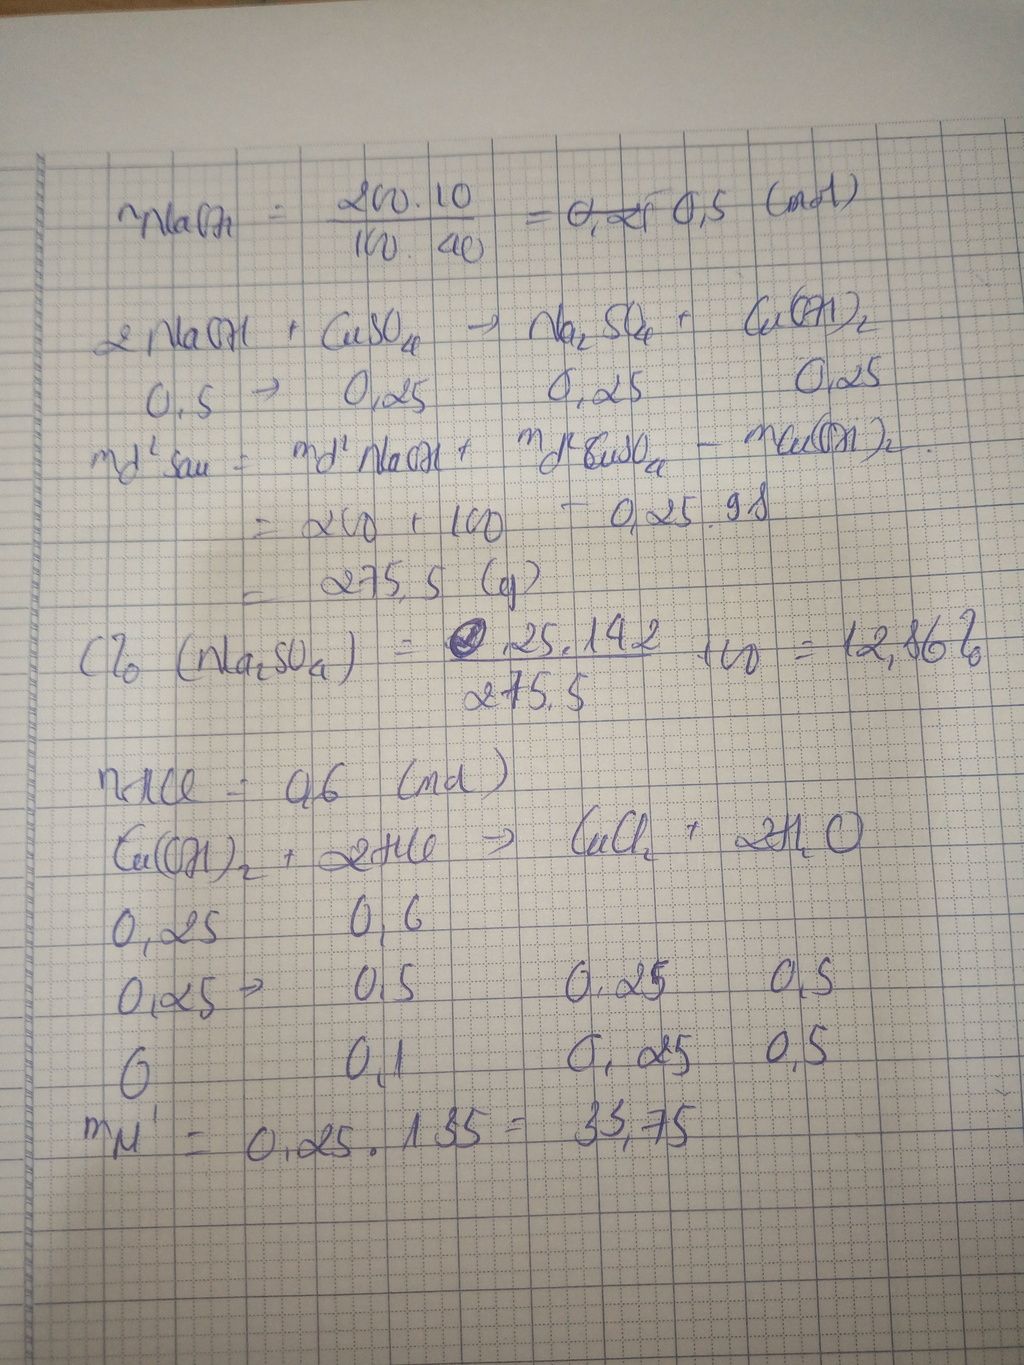 nNaOH = 200.10 / 100.40 = 0,25 0,5 (mol)
2NaOH + CuSO4 → Na2SO4 + Cu(OH)2
0,5 → 0,25 0,25 0,25
md² sau = md² NaOH + md² CuSO4 - mCu(OH)2
= 200 + 100 - 0,25.98
= 275,5 (g)
C% (Na2SO4) = 0,25.142 / 275,5 .100 = 12,86%
nHCl = 0,6 (mol)
Cu(OH)2 + 2HCl → CuCl2 + 2H2O
0,25 0,6
0,25 → 0,5 0,25 0,5
0 0,1 0,25 0,5
mM' = 0,25.135 = 33,75